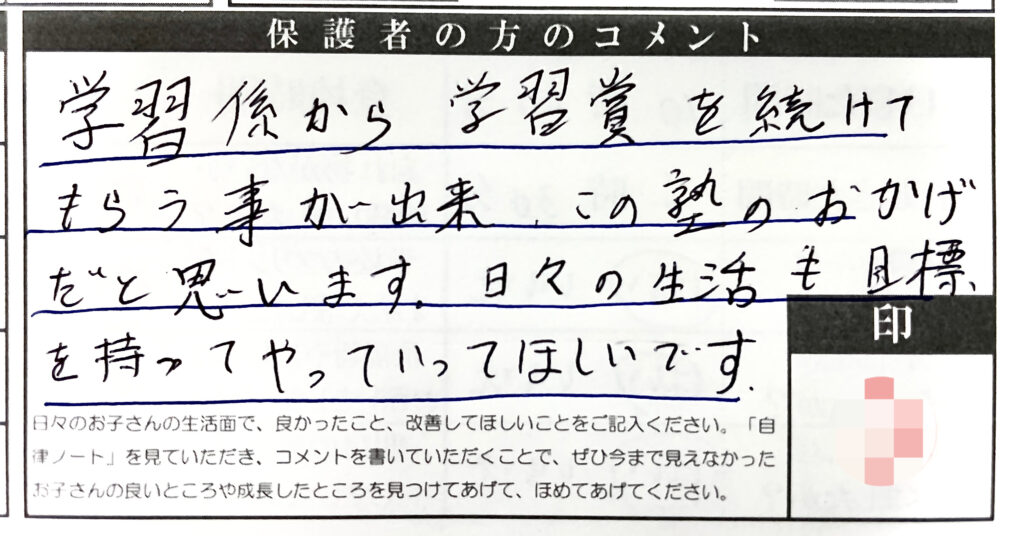 保護者の方のコメント
学習係から学習賞を続けて
もらう事が出来、この塾のおかげ
だと思います。日々の生活も目標
を持ってやっていってほしいです。
印
日々のお子さんの生活面で、良かったこと、改善してほしいことをご記入ください。「自
律ノート」を見ていただき、コメントを書いていただくことで、ぜひ今まで見えなかった
お子さんの良いところや成長したところを見つけてあげて、ほめてあげてください。